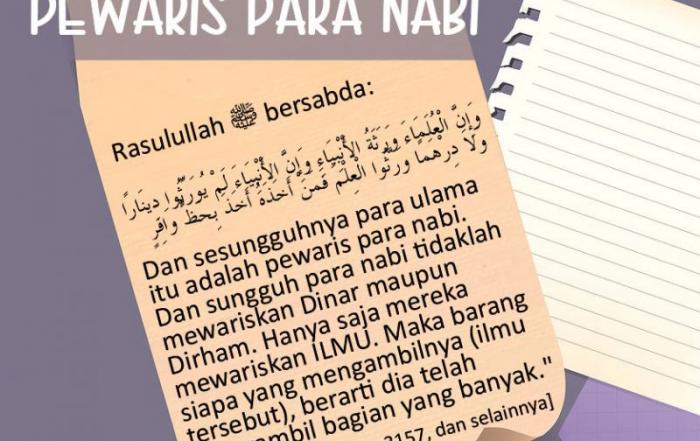 PEWARIS PARA NABI
Rasulullah ﷺ bersabda:
وَإِنَّ الْعُلَمَاءَ وَرَثَةُ الْأَنْبِيَاءِ وَإِنَّ الْأَنْبِيَاءَ لَمْ يُوَرِّثُوا دِينَارًا
وَلَا دِرْهَمًا وَرَّثُوا الْعِلْمَ فَمَنْ أَخَذَهُ أَخَذَ بِحَظٍّ وَافِرٍ
Dan sesungguhnya para ulama
itu adalah pewaris para nabi.
Dan sungguh para nabi tidaklah
mewariskan Dinar maupun
Dirham. Hanya saja mereka
mewariskan ILMU. Maka barang
siapa yang mengambilnya (ilmu
tersebut), berarti dia telah
bagian yang banyak."
3157, dan selainnya]